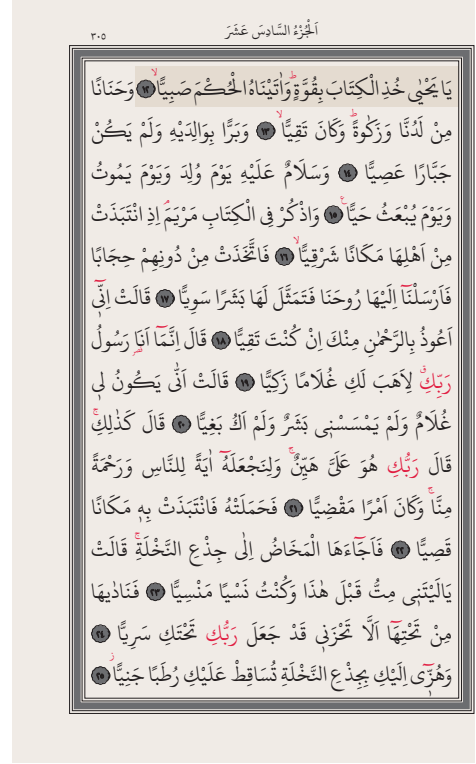 اَلْجُزْءُ السَّادِسَ عَشَرَ
٣٠٥
يَا يَحْيٰى خُذِ الْكِتَابَ بِقُوَّةٍۜ وَاٰتَيْنَاهُ الْحُكْمَ صَبِيًّاۙ ﴿١٢﴾ وَحَنَانًا
مِنْ لَدُنَّا وَزَكٰوةًۜ وَكَانَ تَقِيًّاۙ ﴿١٣﴾ وَبَرًّا بِوَالِدَيْهِ وَلَمْ يَكُنْ
جَبَّارًا عَصِيًّا ﴿١٤﴾ وَسَلَامٌ عَلَيْهِ يَوْمَ وُلِدَ وَيَوْمَ يَمُوتُ
وَيَوْمَ يُبْعَثُ حَيًّا۟ ﴿١٥﴾ وَاذْكُرْ فِى الْكِتَابِ مَرْيَمَۢ اِذِ انْتَبَذَتْ
مِنْ اَهْلِهَا مَكَانًا شَرْقِيًّاۙ ﴿١٦﴾ فَاتَّخَذَتْ مِنْ دُونِهِمْ حِجَابًا
فَاَرْسَلْنَٓا اِلَيْهَا رُوحَنَا فَتَمَثَّلَ لَهَا بَشَرًا سَوِيًّا ﴿١٧﴾ قَالَتْ اِنّ۪ٓى
اَعُوذُ بِالرَّحْمٰنِ مِنْكَ اِنْ كُنْتَ تَقِيًّا ﴿١٨﴾ قَالَ اِنَّمَٓا اَنَا۬ رَسُولُ
رَبِّكِۗ لِاَهَبَ لَكِ غُلَامًا زَكِيًّا ﴿١٩﴾ قَالَتْ اَنّٰى يَكُونُ ل۪ى
غُلَامٌ وَلَمْ يَمْسَسْن۪ى بَشَرٌ وَلَمْ اَكُ بَغِيًّا ﴿٢٠﴾ قَالَ كَذٰلِكِۚ
قَالَ رَبُّكِ هُوَ عَلَىَّ هَيِّنٌۚ وَلِنَجْعَلَهُٓ اٰيَةً لِلنَّاسِ وَرَحْمَةً
مِنَّاۚ وَكَانَ اَمْرًا مَقْضِيًّا ﴿٢١﴾ فَحَمَلَتْهُ فَانْتَبَذَتْ بِه۪ مَكَانًا
قَصِيًّا ﴿٢٢﴾ فَاَجَٓاءَهَا الْمَخَاضُ اِلٰى جِذْعِ النَّخْلَةِۚ قَالَتْ
يَالَيْتَن۪ى مِتُّ قَبْلَ هٰذَا وَكُنْتُ نَسْيًا مَنْسِيًّا ﴿٢٣﴾ فَنَادٰيهَا
مِنْ تَحْتِهَٓا اَلَّا تَحْزَن۪ى قَدْ جَعَلَ رَبُّكِ تَحْتَكِ سَرِيًّا ﴿٢٤﴾
وَهُزّ۪ٓى اِلَيْكِ بِجِذْعِ النَّخْلَةِ تُسَاقِطْ عَلَيْكِ رُطَبًا جَنِيًّاۘ ﴿٢٥﴾